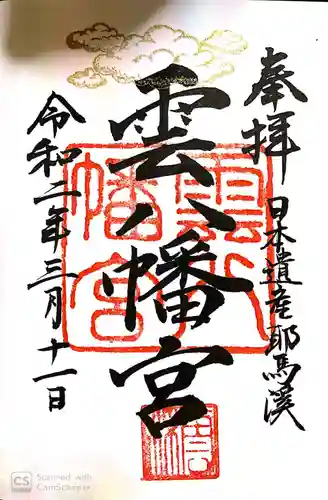 奉拝
日本遺産耶馬溪
雲八幡宮
雲八幡宮
令和二年三月十一日
CS Scanned with
CamScanner